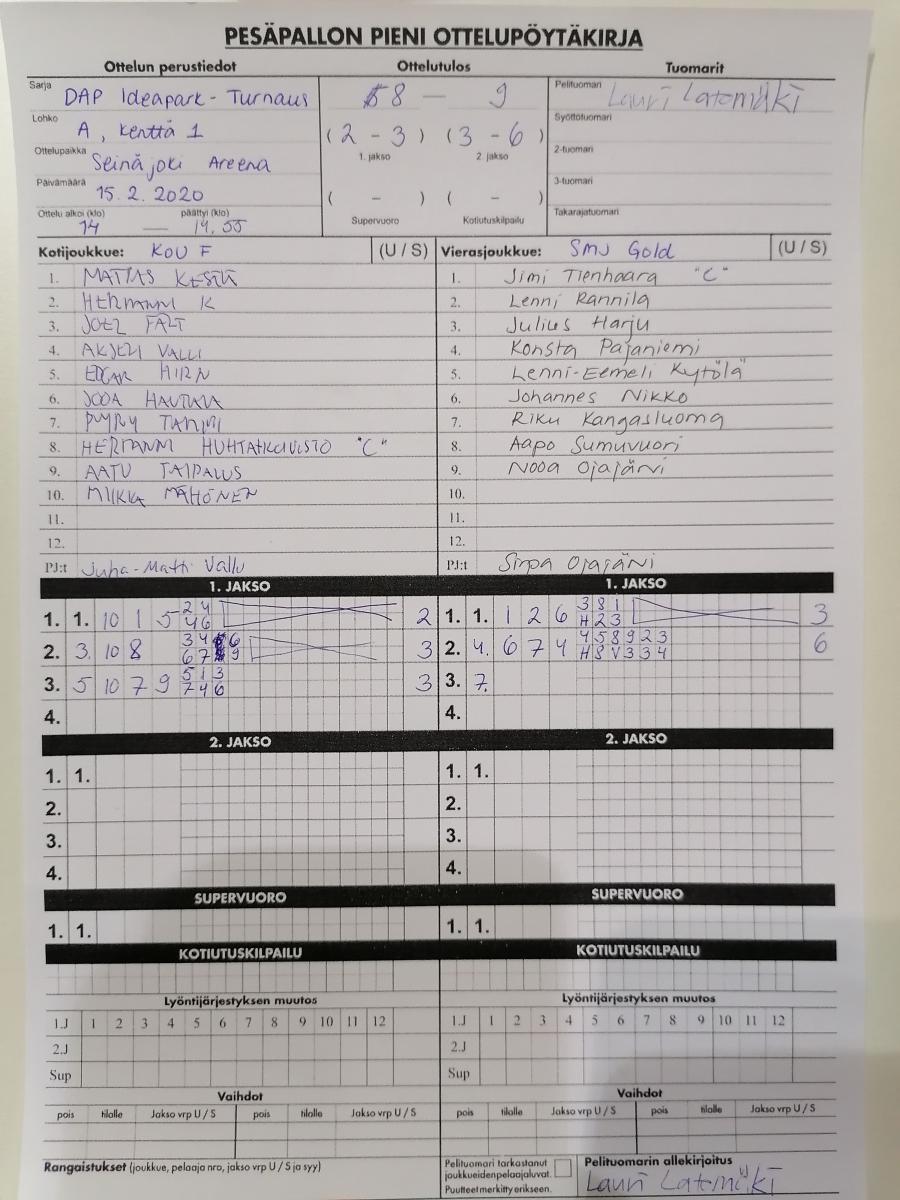 PESÄPALLON PIENI OTTELUPÖYTÄKIRJA
Ottelun perustiedot Ottelutulos Tuomarit
Sarja DAP Ideapark - Turnaus
8 - 9
Pelituomari Lauri Latomäki
Lohko A, kenttä 1
(2 - 3) (3 - 6)
1. jakso 2. jakso
Syöttötuomari
Ottelupaikka Seinäjoki Areena
2-tuomari
Päivämäärä 15.2.2020
( - ) ( - )
Supervuoro Kotiutuskilpailu
3-tuomari
Ottelu alkoi (klo) päättyi (klo)
14 — 14.55
Takarajatuomari
Kotijoukkue: KOU F (U / S) Vierasjoukkue: SMJ Gold (U / S)
1. MATIAS KESTI 1. Jimi Tienhaara "C"
2. HERMANNI K 2. Lenni Rannila
3. JOEL FÄLT 3. Julius Harju
4. AKSELI VALLI 4. Konsta Pajaniemi
5. EDGAR HIRN 5. Lenni-Eemeli Kytölä
6. JOOA 6. Johannes Nikko
7. PYRY TAMMI 7. Riku Kangasluoma
8. HERMANNI HUHTAKUISTO "C" 8. Aapo Sumuvuori
9. AATU TAIPALUS 9. Nooa Ojajärvi
10. MIIKKA MÄHÖNEN 10.
11. 11.
12. 12.
PJ:t Juha-Matti Vallu PJ:t Sirpa Ojajärvi
1. JAKSO 1. JAKSO
1. 1. 10 1 5 2 4 2 1. 1. 1 2 6 3 8 1 3
4 6 H 2 3
2. 3. 10 8 3 4 6 3 2. 4. 6 7 4 4 5 8 9 2 3 6
6 7 9 H S V 3 3 4
3. 5 10 7 9 5 1 3 3 3. 7.
7 4 6
4. 4.
2. JAKSO 2. JAKSO
1. 1. 1. 1.
2. 2.
3. 3.
4. 4.
SUPERVUORO SUPERVUORO
1. 1. 1. 1.
KOTIUTUSKILPAILU KOTIUTUSKILPAILU
Lyöntijärjestyksen muutos Lyöntijärjestyksen muutos
1.J 1 2 3 4 5 6 7 8 9 10 11 12 1.J 1 2 3 4 5 6 7 8 9 10 11 12
2.J 2.J
Sup Sup
Vaihdot Vaihdot
pois tilalle Jakso vrp U / S pois tilalle Jakso vrp U / S pois tilalle Jakso vrp U / S pois tilalle Jakso vrp U / S
Rangaistukset (joukkue, pelaaja nro, jakso vrp U / S ja syy)
Pelituomari tarkastanut
joukkueidenpelaajaluvat.
Puutteet merkitty erikseen.
Pelituomarin allekirjoitus
Lauri Latomäki